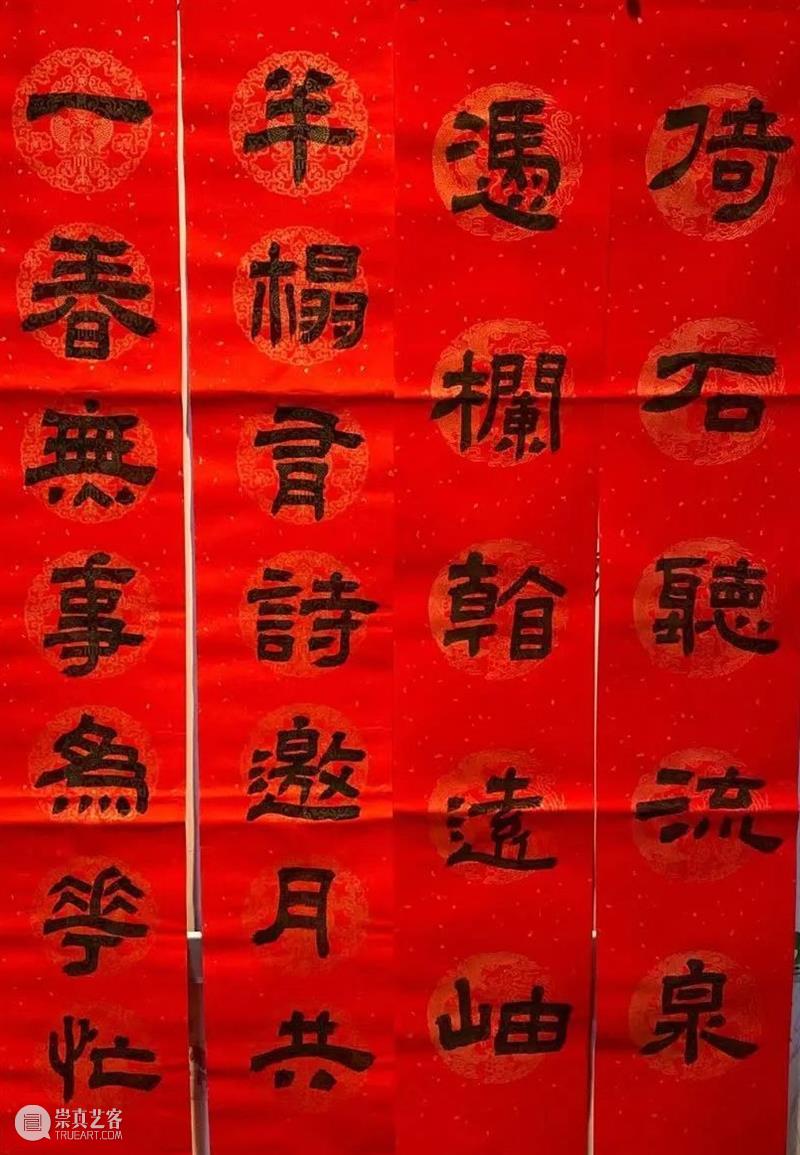 倚石聽流泉
憑欄遠岫
半榻有詩邀月共
一春無事為花忙
崇真艺客
TRUEART.COM